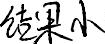 结果小